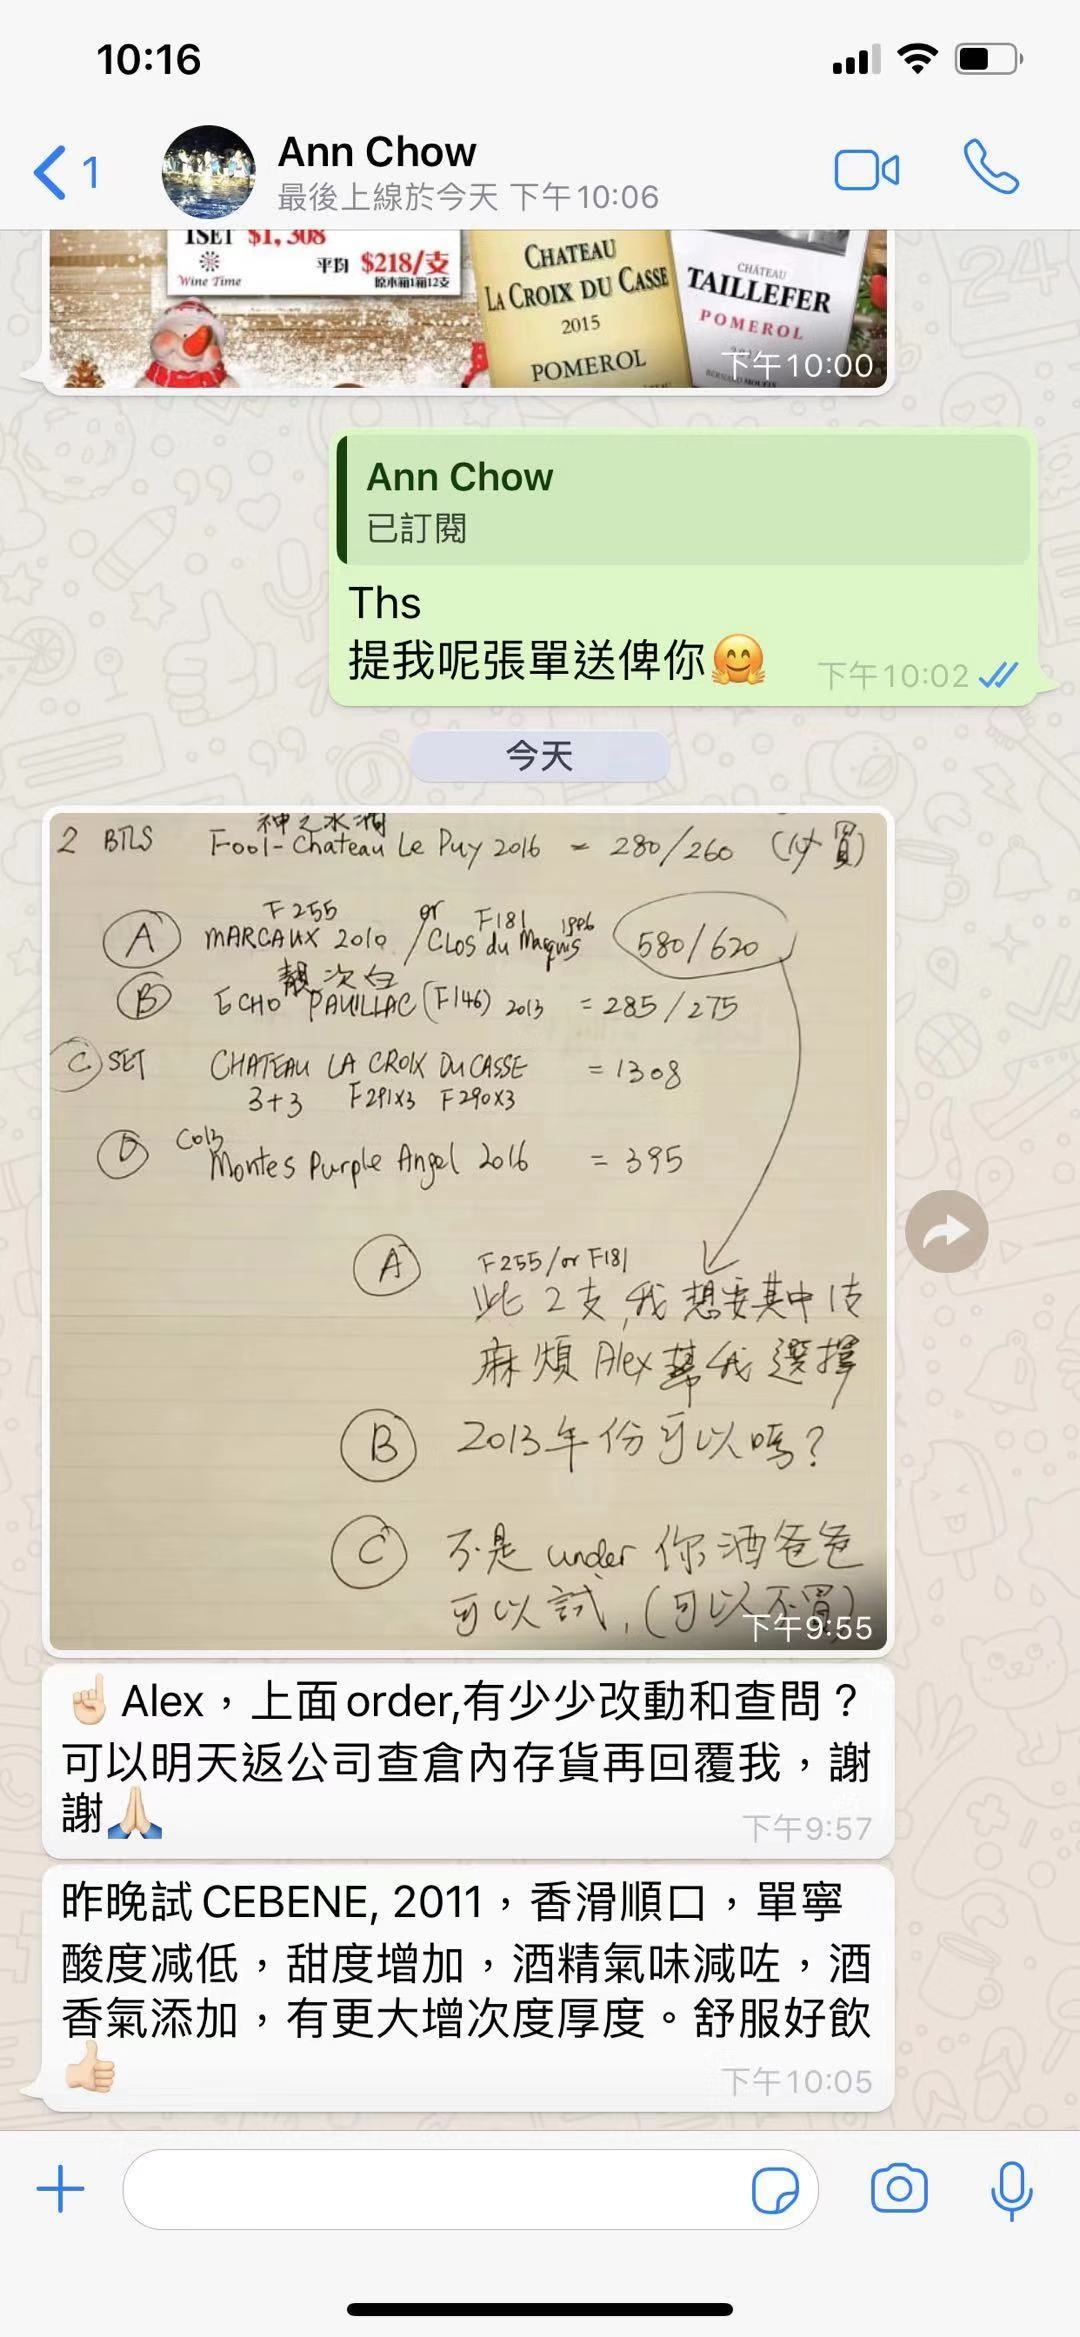 10:16
1
Ann Chow
最後上線於今天 下午10:06
1SET $1,308
平均 $218/支
原木箱1箱12支
Wine Time
CHATEAU
LA CROIX DU CASSE
2015
POMEROL
CHÂTEAU
TAILLEFER
POMEROL
下午10:00
Ann Chow
已訂閱
Ths
提我呢張單送俾你🤗
下午10:02
今天
神之水滴
2 BTLS Fool-Chateau Le Puy 2016 = 280/260 (必買)
F255 or F181 1996
A MARGAUX 2010 / CLOS du Marquis 580/620
靚次白
B ECHO PAUILLAC (F146) 2013 = 285/275
C SET CHATEAU LA CROIX DU CASSE = 1308
3+3 F291X3 F290X3
D C013
Montes Purple Angel 2016 = 395
A F255/or F181
此2支,我想要其中1支
麻煩Alex幫我選擇
B 2013年份可以嗎?
C 不是under你酒爸爸
可以試,(可以不買)
下午9:55
☝🏻Alex，上面order,有少少改動和查問？
可以明天返公司查倉內存貨再回覆我，謝
謝🙏🏻
下午9:57
昨晚試CEBENE, 2011，香滑順口，單寧
酸度減低，甜度增加，酒精氣味減咗，酒
香氣添加，有更大增次度厚度。舒服好飲
👍🏻
下午10:05